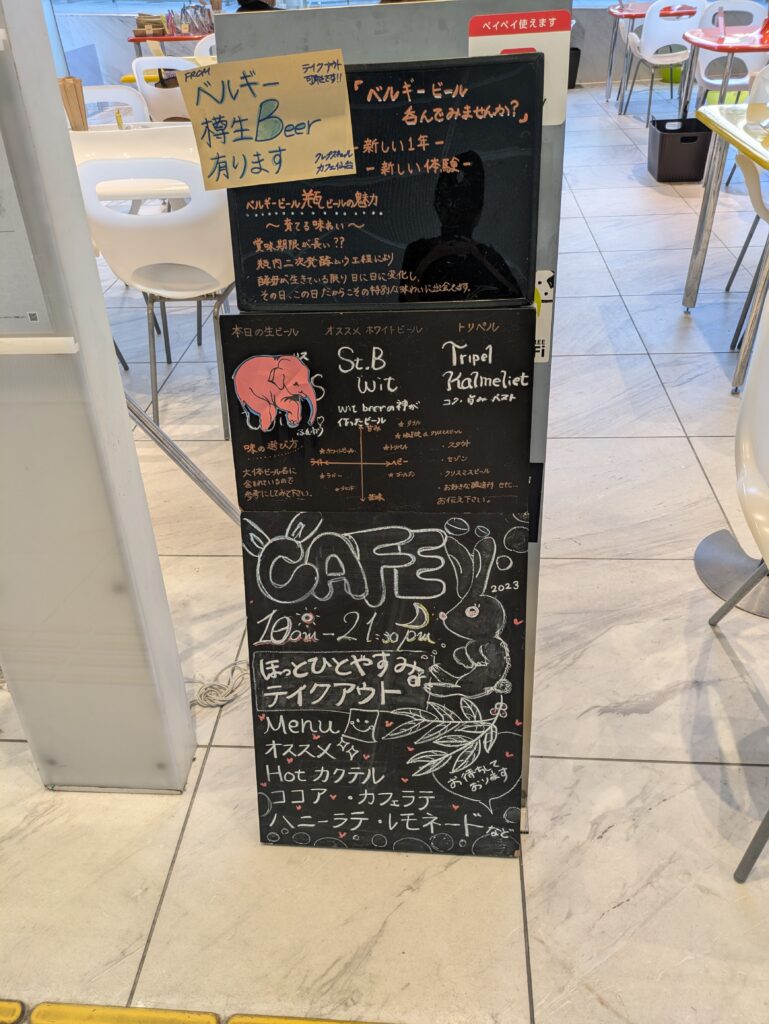 ペイペイ使えます
FROM
ベルギー
樽生Beer
有ります
テイクアウト
可能です!!
「ベルギービール
呑んでみませんか?」
- 新しい1年 -
- 新しい体験 -
ベルギービール瓶ビールの魅力
〜育てる味わい〜
賞味期限が長い??
瓶内二次発酵という工程により
酵母が生きている限り日に日に変化し、
その日、この日だからこその特別な味わいに出会えます。
本日の生ビール
オススメ ホワイトビール
St.B
Wit
Wit beerの神が
作ったビール
トリペル
Tripel
Kalmeliet
コク・旨み ベスト
味の選び方
大体ビール名に
含まれているので
参考にしてみて下さい。
甘み
ライト
ヘビー
苦味
★ホワイトビール
★トリペル
★ゴールデン
・スタウト
・セゾン
・クリスマスビール
・お好きな醸造所 etc...
お伝え下さい。
CAFE
2023
10am-21:30pm
ほっとひとやすみな
テイクアウト
Menu
オススメ
Hot カクテル
ココア・カフェラテ
ハニーラテ・レモネードなど
お待ちして
おります